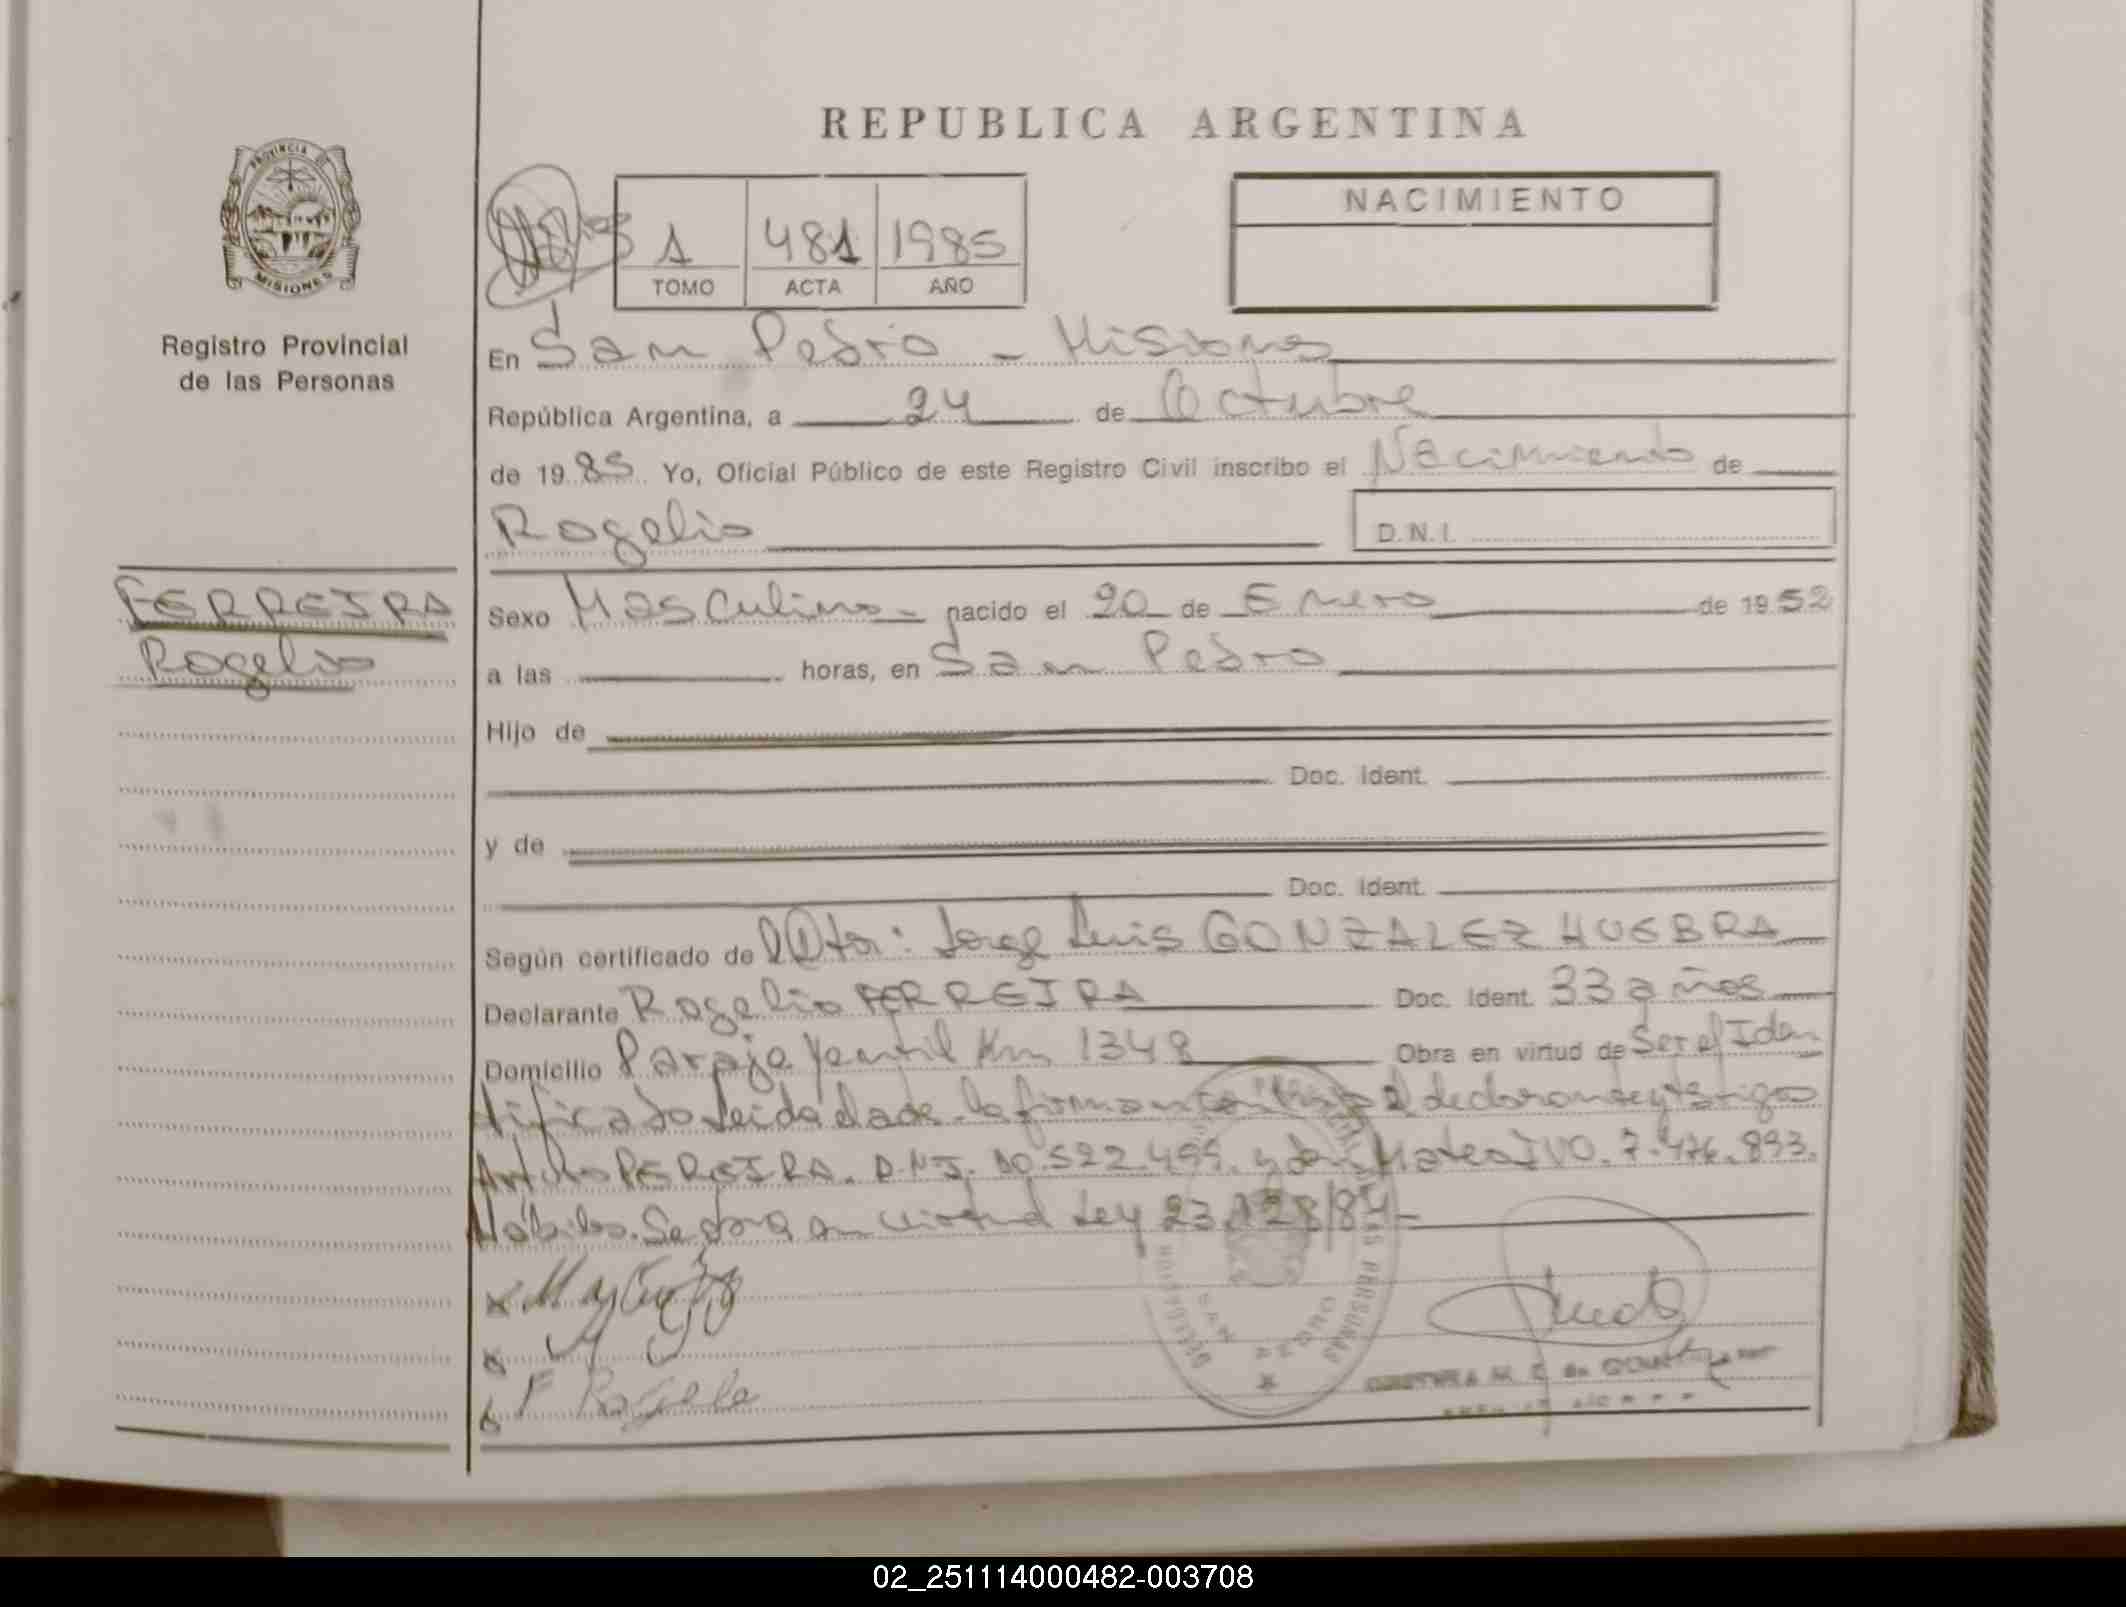 REPUBLICA ARGENTINA
PROVINCIA DE
MISIONES
Registro Provincial
de las Personas
1 481 1985
TOMO ACTA AÑO
NACIMIENTO
En San Pedro - Misiones
República Argentina, a 24 de Octubre
de 1985. Yo, Oficial Público de este Registro Civil inscribo el Nacimiento de
Rogelio
D.N.I.
FERREIRA
Rogelio
Sexo Masculino - nacido el 20 de Enero de 1952
a las horas, en San Pedro
Hijo de
Doc. Ident.
y de
Doc. Ident.
Según certificado de Jorge Luis GONZALEZ HUEBRA
Declarante Rogelio FERREIRA Doc. Ident. 33 años
Domicilio Paraje Km 1348 Obra en virtud de Ser el Iden
tificado Leida el acta la firman declarante y testigos
Arturo PEREIRA. D.N.I. 10.522.499. y Mateo IVO. 7.476.893.
Hábiles. Se obra en virtud Ley 23.128/84-
SAN PEDRO
PERSONAS
F Rogelo
02_251114000482-003708